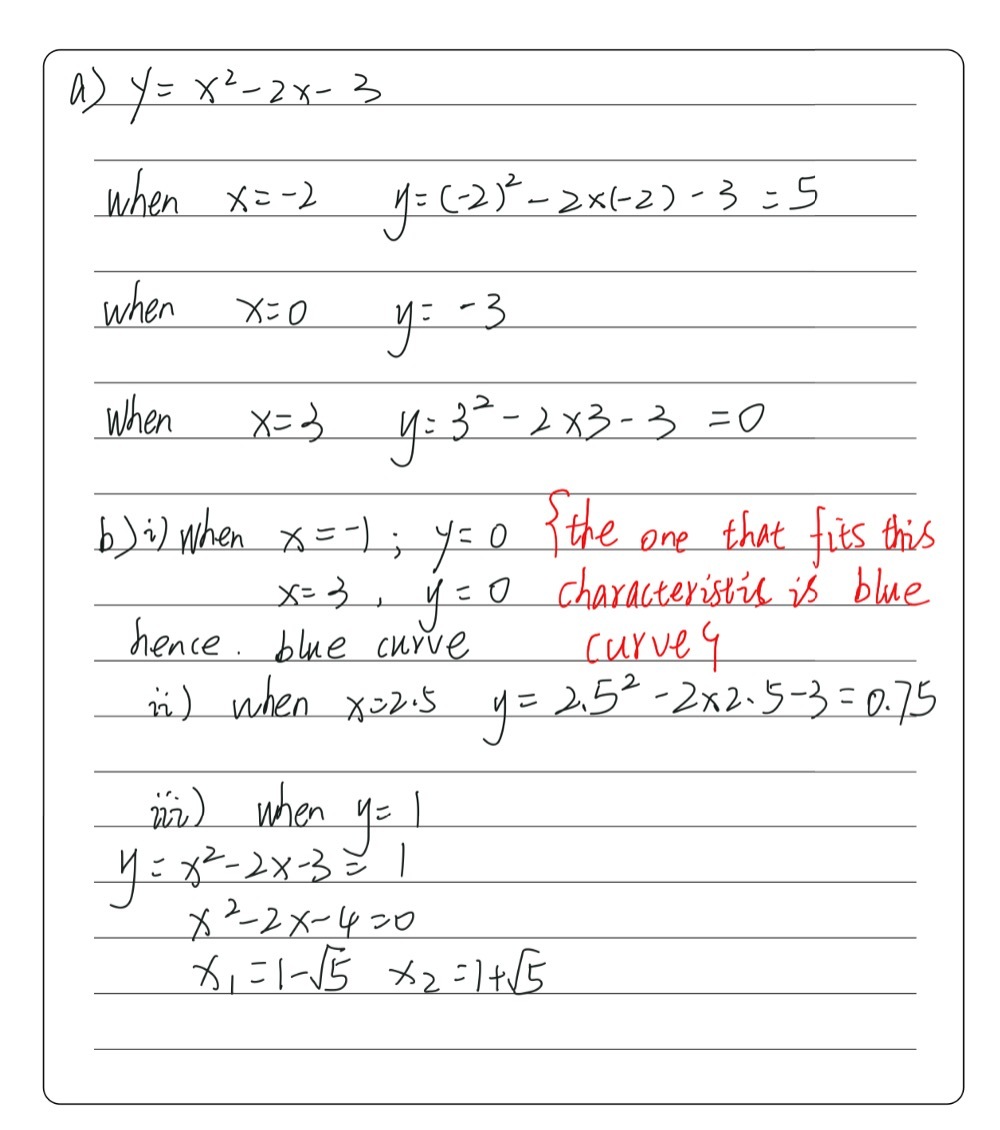 a) y = x² - 2x - 3
when x = -2 y = (-2)² - 2×(-2) - 3 = 5
when x = 0 y = -3
when x = 3 y = 3² - 2×3 - 3 = 0
b) i) when x = -1 ; y = 0 {the one that fits this
x = 3 , y = 0 characteristic is blue
hence . blue curve curve}
ii) when x = 2.5 y = 2.5² - 2×2.5 - 3 = 0.75
iii) when y = 1
y = x² - 2x - 3 = 1
x² - 2x - 4 = 0
x₁ = 1 - √5 x₂ = 1 + √5